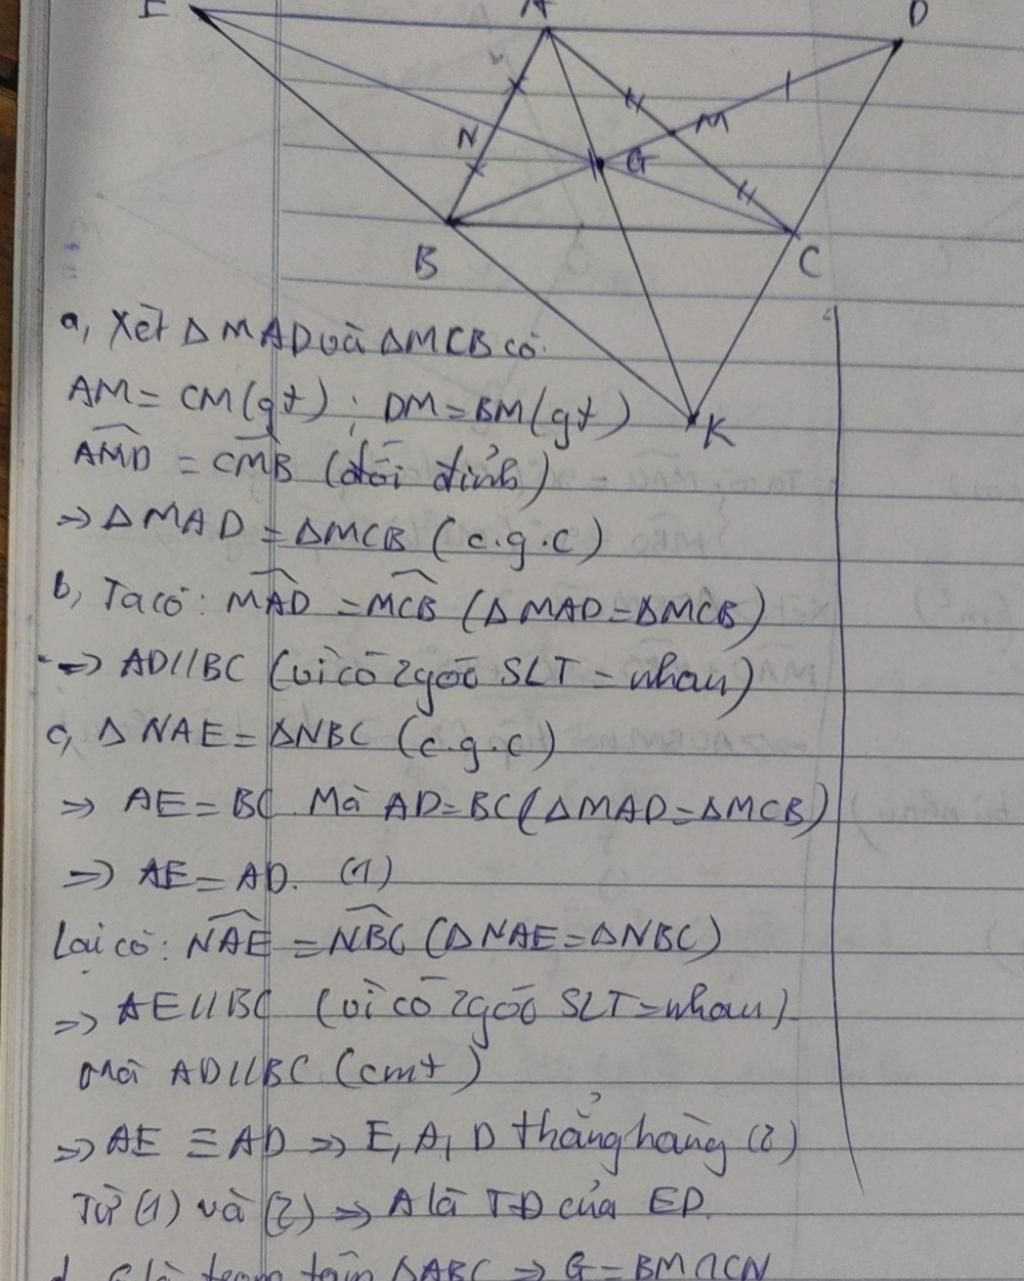 E A D
M
N
G
B
C
K
a, Xét ΔMAD và ΔMCB có:
AM = CM (gt) ; DM = BM (gt)
$\widehat{AMD}$ = $\widehat{CMB}$ (đối đỉnh)
=> ΔMAD = ΔMCB (c.g.c)
b, Ta có: $\widehat{MAD}$ = $\widehat{MCB}$ (ΔMAD = ΔMCB)
=> AD // BC (vì có 2 góc SLT = nhau)
c, ΔNAE = ΔNBC (c.g.c)
=> AE = BC. Mà AD = BC (ΔMAD = ΔMCB)
=> AE = AD. (1)
Lại có: $\widehat{NAE}$ = $\widehat{NBC}$ (ΔNAE = ΔNBC)
=> AE // BC (vì có 2 góc SLT = nhau)
Mà AD // BC (cmt)
=> AE ≡ AD => E, A, D thẳng hàng (2)
Từ (1) và (2) => A là TĐ của ED.
d, G là trọng tâm ΔABC => G = BM ∩ CN